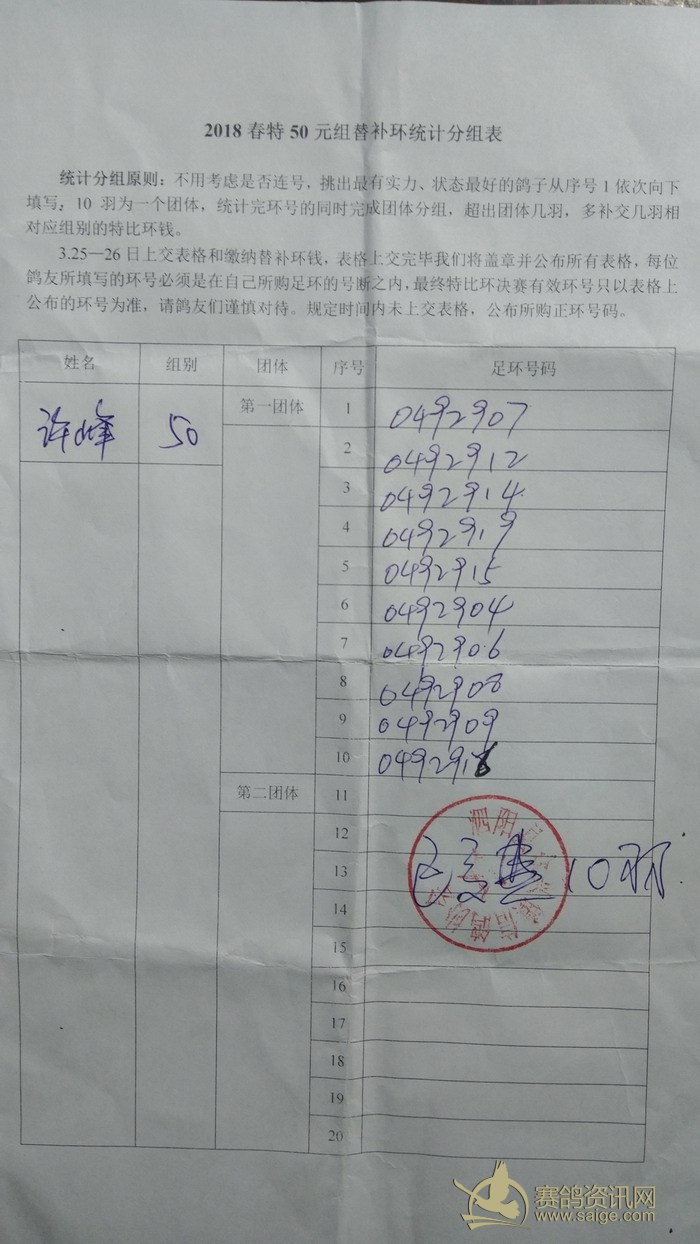 2018 春特 50 元组替补环统计分组表
统计分组原则：不用考虑是否连号，挑出最有实力、状态最好的鸽子从序号 1 依次向下
填写，10 羽为一个团体，统计完环号的同时完成团体分组，超出团体几羽，多补交几羽相
对应组别的特比环钱。
3.25—26 日上交表格和缴纳替补环钱，表格上交完毕我们将盖章并公布所有表格，每位
鸽友所填写的环号必须是在自己所购足环的号断之内，最终特比环决赛有效环号只以表格上
公布的环号为准，请鸽友们谨慎对待。规定时间内未上交表格，公布所购正环号码。
姓名 组别 团体 序号 足环号码
许峰 50 第一团体 1 0492907
2 0492912
3 0492914
4 0492919
5 0492915
6 0492904
7 0492906
8 0492908
9 0492909
10 0492918
第二团体 11
12
泗阳
13
10羽
14
15
16
17
18
19
20
赛鸽资讯网
www.saige.com